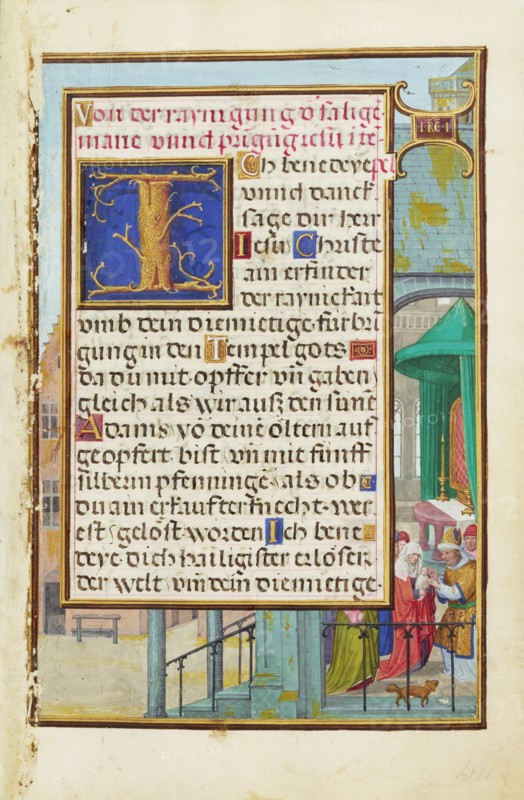 Von der raynigung d' salige-
marie vnnd pringūg iesu i tē-
pel
Ich benedeye
vnnd danck-
sage dir herr
Iesu Christe
ain erfinder
der raynickait
vmb dein diemietige fürbri
gung in den Tempel gots
da du mit opffer vn̄ gaben
gleich als wir auß den sune
Adamis vō deine öltern auf
geopfert bist vn mit fünff
silberin pfenninge als ob
du ain erkaufter knecht wer
est gelöst worden Ich bene
deye dich hailigister erlöser
der welt vm̄ dein diemietige